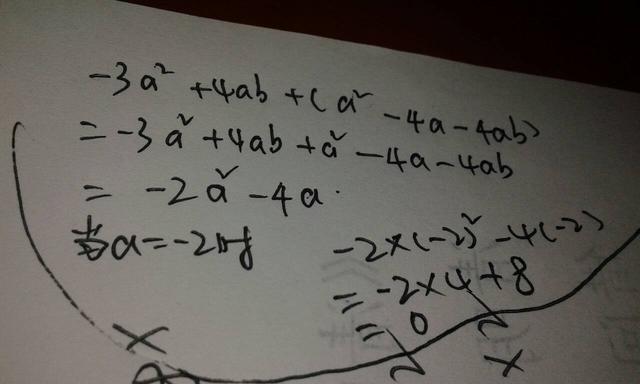 -3a²+4ab+(a²-4a-4ab)
=-3a²+4ab+a²-4a-4ab
=-2a²-4a.
当a=-2时
-2×(-2)²-4(-2)
=-2×4+8
=0